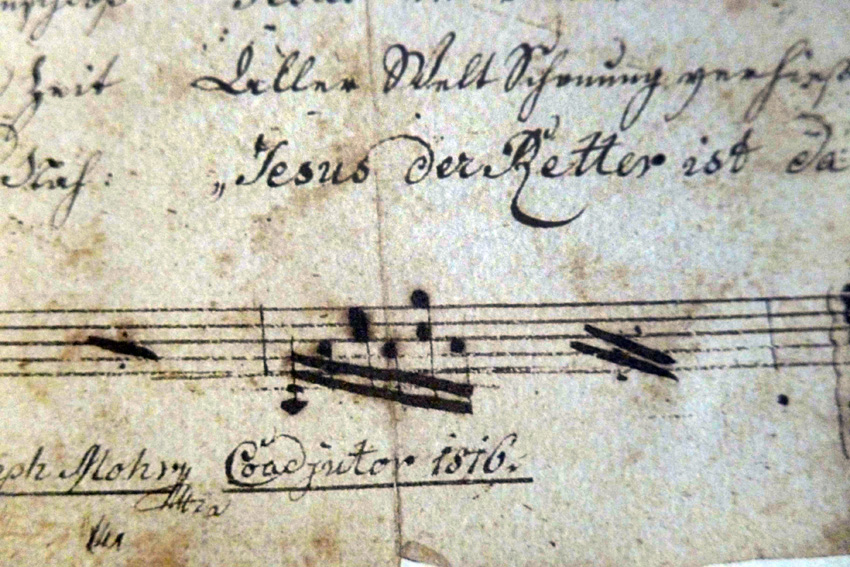 Zeit Aller Welt Schonung verhieß
Nah: „Jesus der Retter ist da
Mohr Coadjutor 1816.